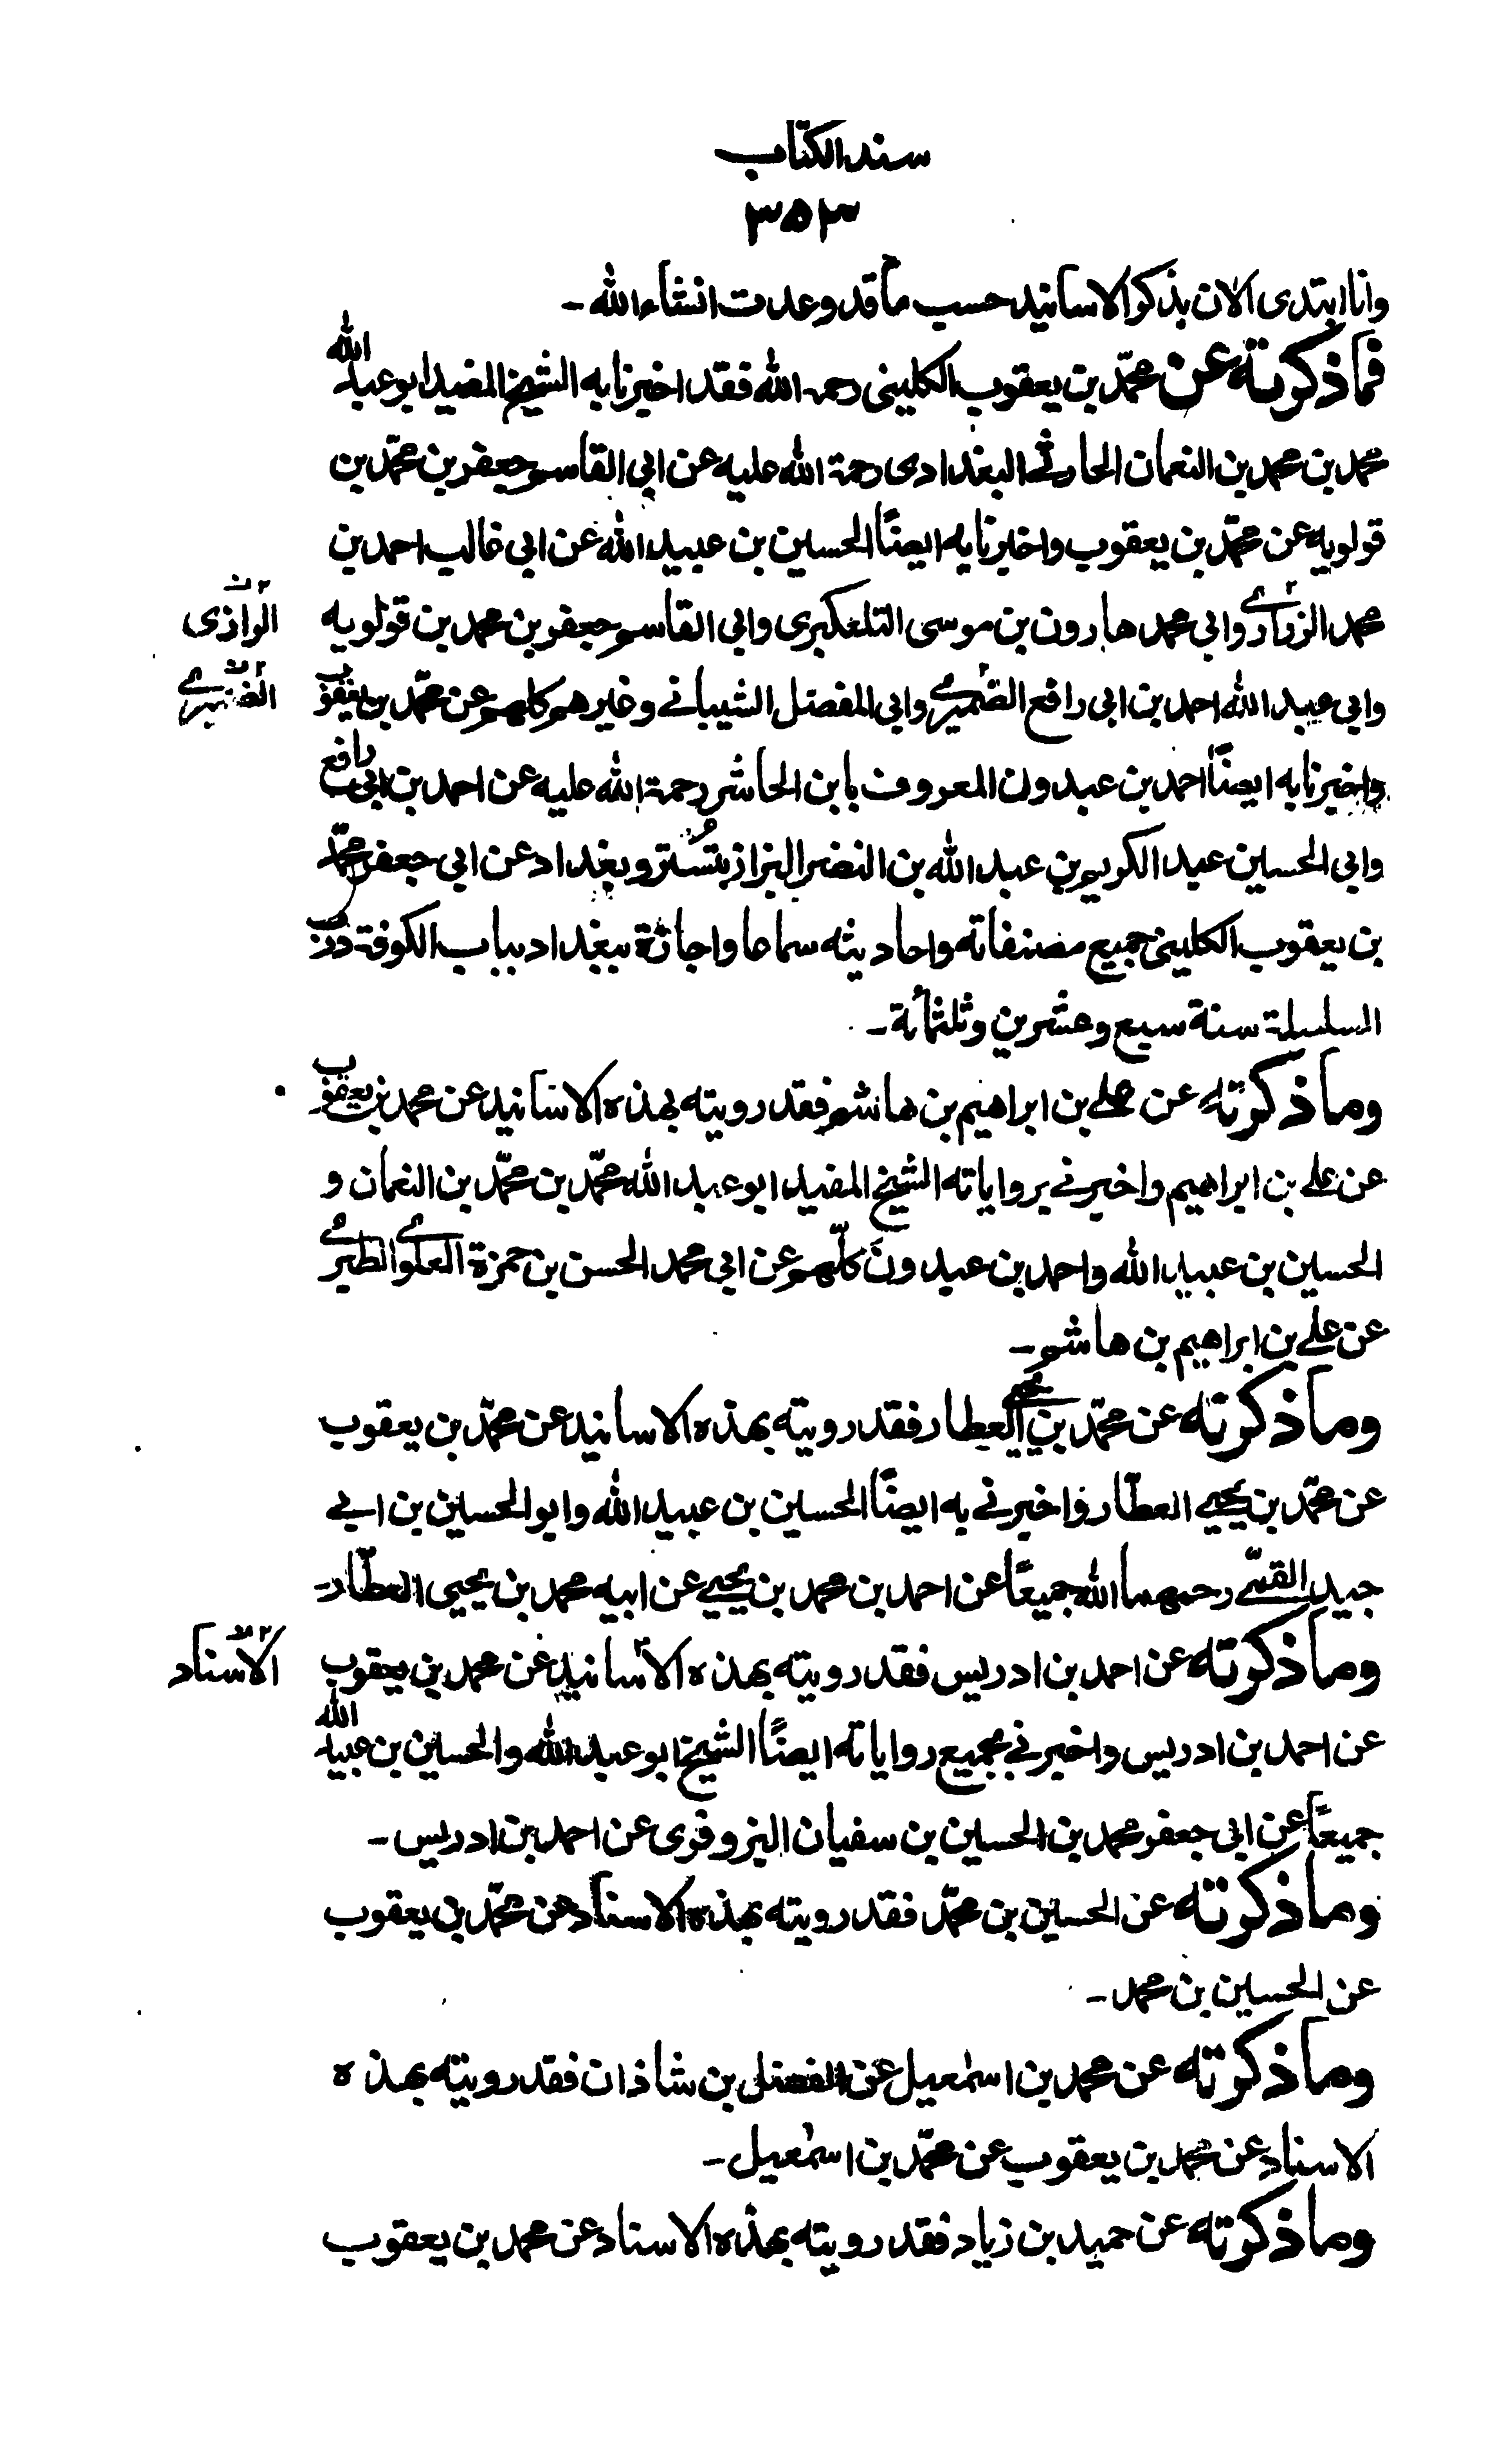 سند الكتاب
٣٥٣
وانا ابتدى الان بذكر الاسانيد حسب ما قد وعدت انشاء الله ـ
فما ذكرته عن محمّد بن يعقوب الكلينى رحمه الله فقد اخبرنا به الشيخ المفيد ابو عبد الله
محمد بن محمد بن النعمان الحارثى البغدادى رحمة الله عليه عن ابى القاسم جعفر بن محمّد بن
قولويه عن محمّد بن يعقوب واخبرنا به ايضًا الحسين بن عبيد الله عن ابى غالب احمد بن
محمد الزرارى وابى محمد هارون بن موسى التلعكبرى وابى القاسم جعفر بن محمد بن قولويه
الرازى
وابى عبد الله احمد بن ابى رافع الصيمرى وابى المفضل الشيبانى وغيرهم كلهم عن محمّد بن يعقوب
واخبرنا به ايضًا احمد بن عبدون المعروف بابن الحاشر رحمة الله عليه عن احمد بن ابى رافع
وابى الحسين عبد الكريم بن عبد الله بن النضر البزاز بتُستر وبغداد عن ابى جعفر محمّد
بن يعقوب الكلينى جميع مصنفاته واحاديثه سماعا واجازة ببغداد بباب الكوفة درب
السلسلة سنة سبع وعشرين وثلثمائة ـ
وما ذكرته عن على بن ابراهيم بن هاشم فقد رويته بهذه الاسانيد عن محمد بن يعقوب
عن على بن ابراهيم واخبرنى برواياته الشيخ المفيد ابو عبد الله محمّد بن محمّد بن النعمان و
الحسين بن عبيد الله واحمد بن عبدون كلّهم عن ابى محمد الحسن بن حمزة العلوى الطبرى
عن على بن ابراهيم بن هاشم ـ
وما ذكرته عن محمّد بن يحيى العطار فقد رويته بهذه الاسانيد عن محمّد بن يعقوب
عن محمّد بن يحيى العطّار واخبرنى به ايضًا الحسين بن عبيد الله وابو الحسين بن ابى
جيد القمّى رحمهما الله جميعًا عن احمد بن محمد بن يحيى عن ابيه محمد بن يحيى العطّار ـ
وما ذكرته عن احمد بن ادريس فقد رويته بهذه الاسانيد عن محمد بن يعقوب
الاسناد
عن احمد بن ادريس واخبرنى بجميع رواياته ايضًا الشيخ ابو عبد الله والحسين بن عبيد الله
جميعًا عن ابى جعفر محمد بن الحسين بن سفيان البزوفرى عن احمد بن ادريس ـ
وما ذكرته عن الحسين بن محمّد فقد رويته بهذه الاسناد عن محمّد بن يعقوب
عن الحسين بن محمد ـ
وما ذكرته عن محمد بن اسمٰعيل عن الفضل بن شاذان فقد رويته بهذه
الاسناد عن محمد بن يعقوب عن محمّد بن اسمٰعيل ـ
وما ذكرته عن حميد بن زياد فقد رويته بهذه الاسناد عن محمد بن يعقوب